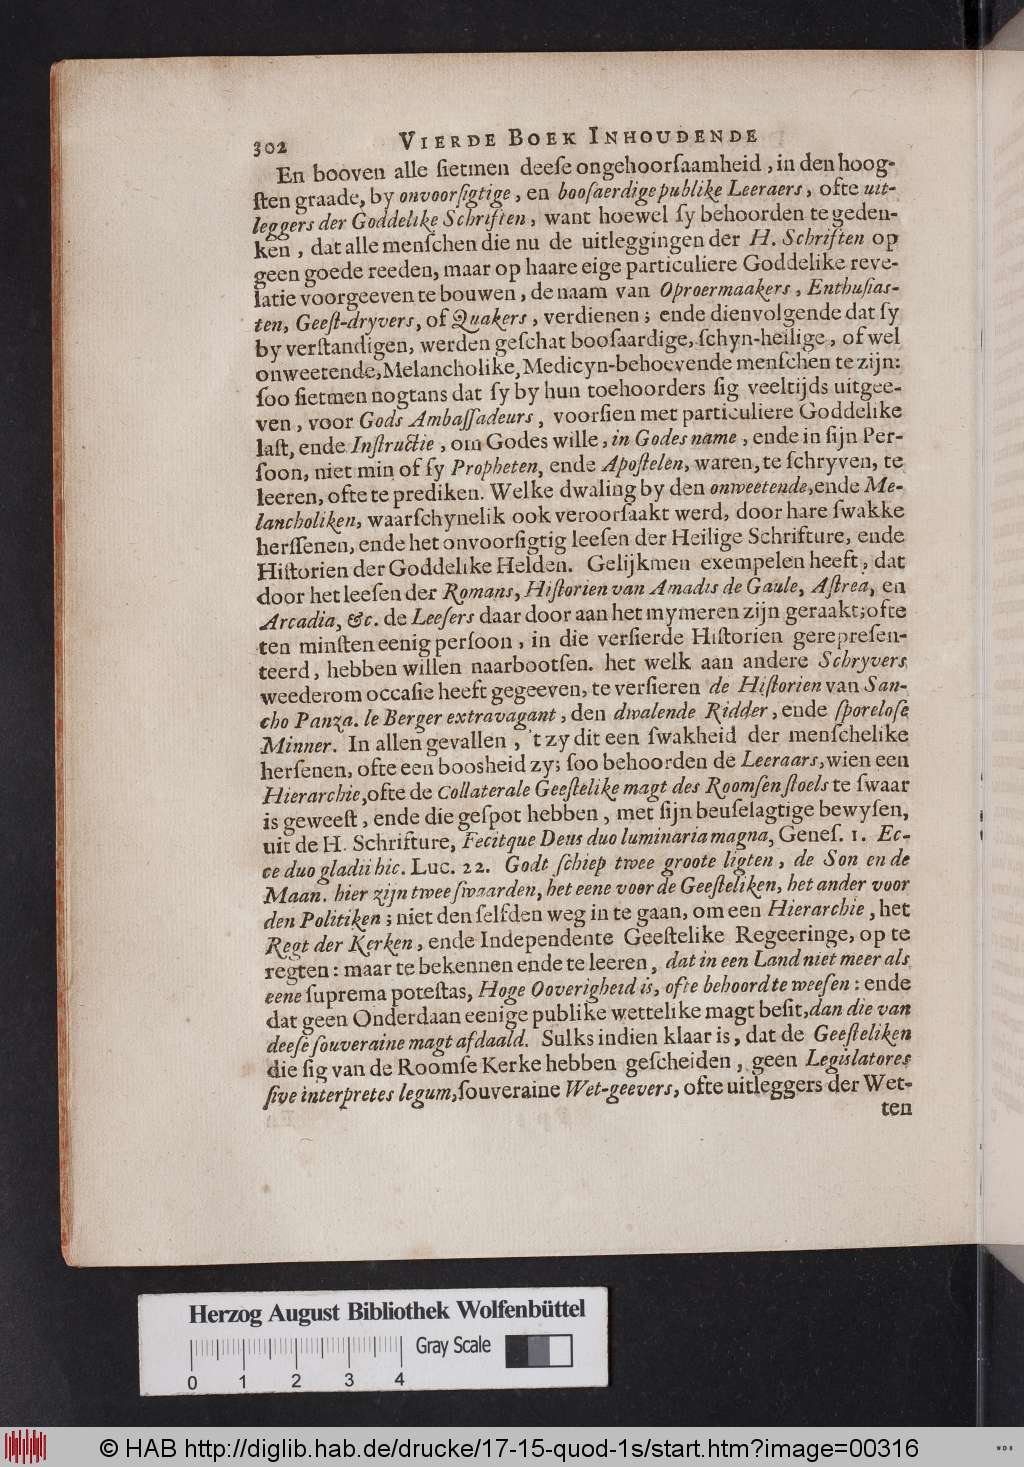 302 VIERDE BOEK INHOUDENDE
En booven alle sietmen deese ongehoorsaamheid, in den hoog-
sten graade, by onvoorsigtige, en boosaerdige publike Leeraers, ofte uit-
leggers der Goddelike Schriften, want hoewel sy behoorden te geden-
ken, dat alle menschen die nu de uitleggingen der H. Schriften op
geen goede reeden, maar op haare eige particuliere Goddelike reve-
latie voorgeeven te bouwen, de naam van Oproermaakers, Enthusias-
ten, Geest-dryvers, of Quakers, verdienen; ende dienvolgende dat sy
by verstandigen, werden geschat boosaardige, schyn-heilige, of wel
onweetende, Melancholike, Medicyn-behoevende menschen te zijn:
soo sietmen nogtans dat sy by hun toehoorders sig veeltijds uitgee-
ven, voor Gods Ambassadeurs, voorsien met particuliere Goddelike
last, ende Instructie, om Godes wille, in Godes name, ende in sijn Per-
soon, niet min of sy Propheten, ende Apostelen, waren, te schryven, te
leeren, ofte te prediken. Welke dwaling by den onweetende, ende Me-
lancholiken, waarschynelik ook veroorsaakt werd, door hare swakke
herssenen, ende het onvoorsigtig leesen der Heilige Schrifture, ende
Historien der Goddelike Helden. Gelijkmen exempelen heeft, dat
door het leesen der Romans, Historien van Amadis de Gaule, Astrea, en
Arcadia, &c. de Leesers daar door aan het mymeren zijn geraakt; ofte
ten minsten eenig persoon, in die versierde Historien gerepresen-
teerd, hebben willen naarbootsen. het welk aan andere Schryvers
weederom occasie heeft gegeeven, te versieren de Historien van San-
cho Panza. le Berger extravagant, den dwalende Ridder, ende sporelose
Minner. In allen gevallen, 't zy dit een swakheid der menschelike
hersenen, ofte een boosheid zy; soo behoorden de Leeraars, wien een
Hierarchie, ofte de Collaterale Geestelike magt des Roomsen stoels te swaar
is geweest, ende die gespot hebben, met sijn beuselagtige bewysen,
uit de H. Schrifture, Fecitque Deus duo luminaria magna, Genes. 1. Ec-
ce duo gladii hic. Luc. 22. Godt schiep twee groote ligten, de Son en de
Maan. hier zijn twee swaarden, het eene voor de Geesteliken, het ander voor
den Politiken; niet den selfden weg in te gaan, om een Hierarchie, het
Regt der Kerken, ende Independente Geestelike Regeeringe, op te
regten: maar te bekennen ende te leeren, dat in een Land niet meer als
eene suprema potestas, Hoge Ooverigheid is, ofte behoord te weesen: ende
dat geen Onderdaan eenige publike wettelike magt besit, dan die van
deese souveraine magt afdaald. Sulks indien klaar is, dat de Geesteliken
die sig van de Roomse Kerke hebben gescheiden, geen Legislatores
sive interpretes legum, souveraine Wet-geevers, ofte uitleggers der Wet-
ten
Herzog August Bibliothek Wolfenbüttel
Gray Scale
0 1 2 3 4
© HAB http://diglib.hab.de/drucke/17-15-quod-1s/start.htm?image=00316